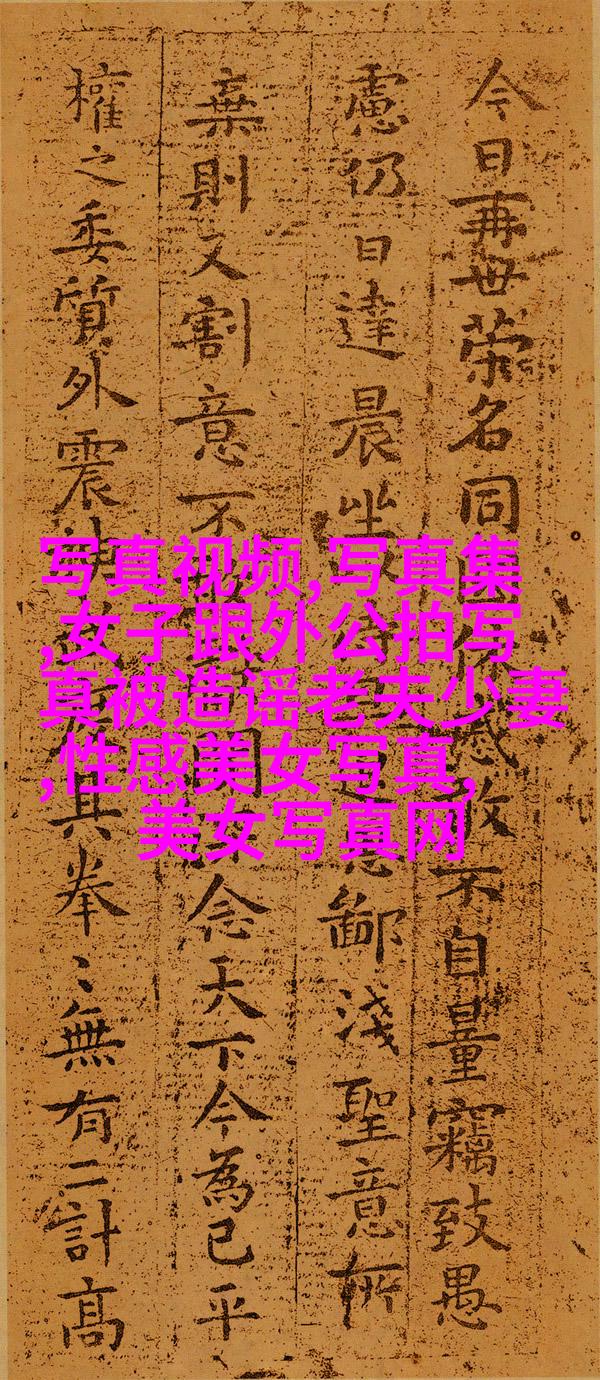 今日再世荣名同休慼敢不自量竊致愚
慮仍日達晨坐鄙淺聖意所
棄則又割意不聞念天下今為已平
權之委質外震其拳〻無有二計高
写真视频,写真集
,女子跟外公拍写
真被造谣老夫少妻
,性感美女写真,
美女写真网